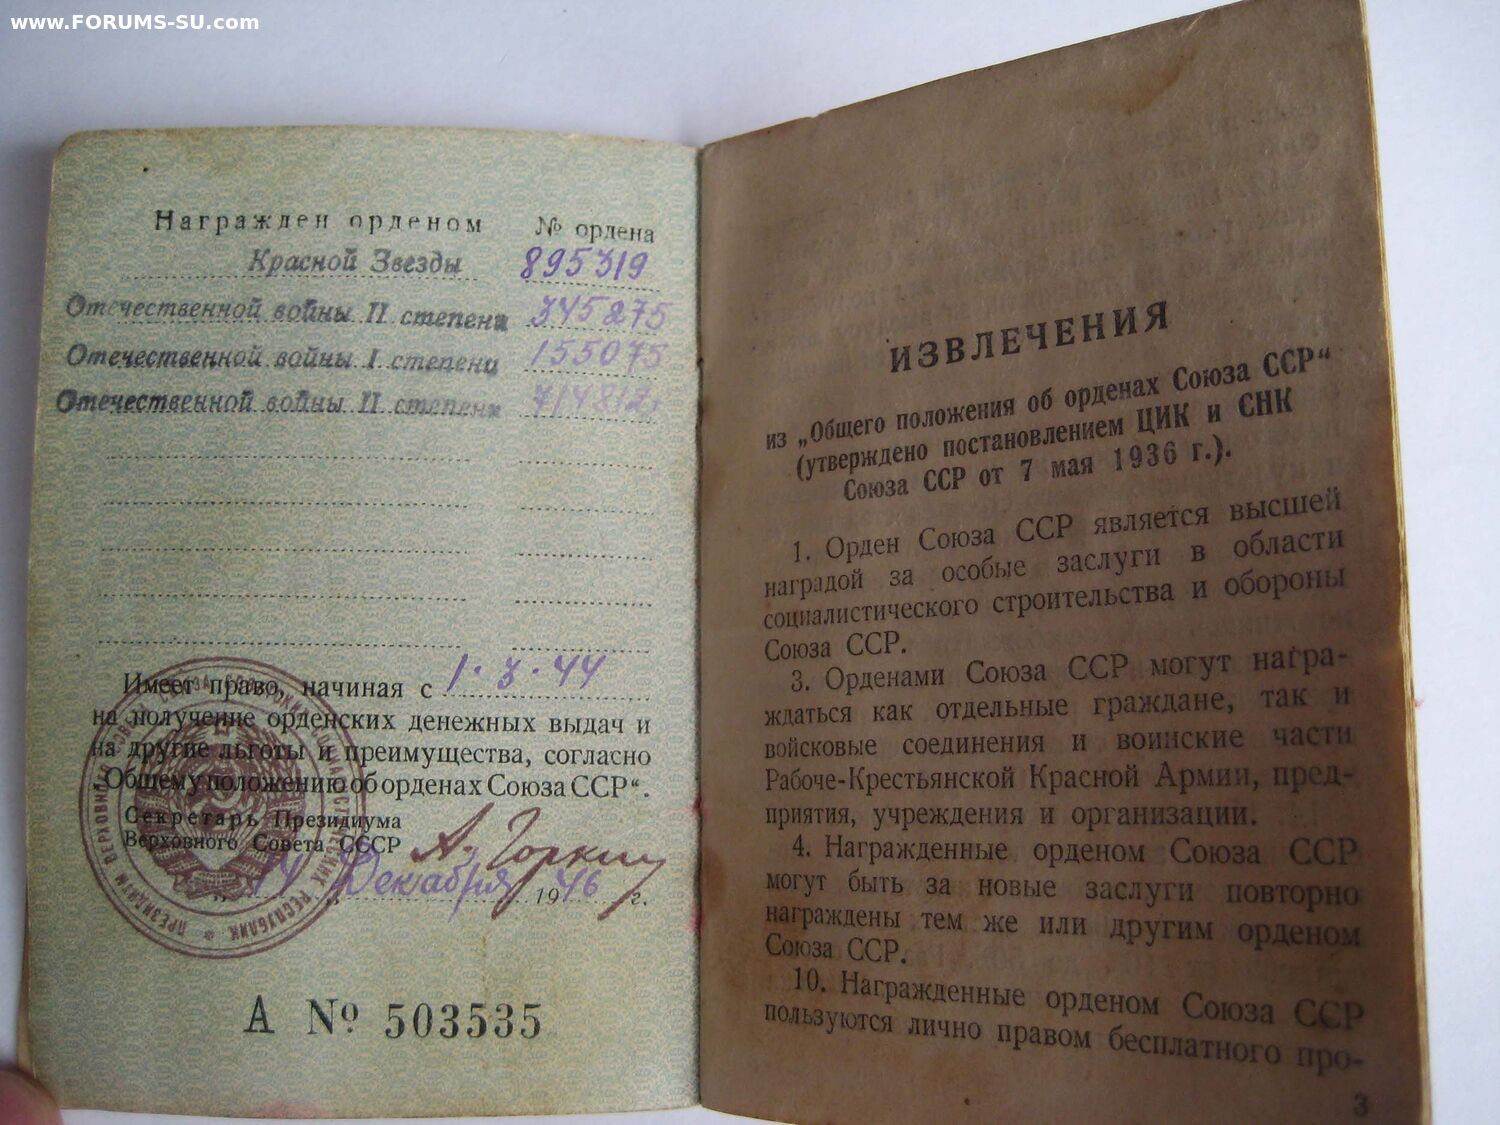 www.FORUMS-SU.com
Награжден орденом № ордена
Красной Звезды 895319
Отечественной войны II степени 345275
Отечественной войны I степени 155075
Отечественной войны II степени 714812
Имеет право, начиная с 1.3.44
на получение орденских денежных выдач и
на другие льготы и преимущества, согласно
„Общему положению об орденах Союза ССР“.
Секретарь Президиума
Верховного Совета СССР А. Горкин
„14 „ Декабря 1946 г.
А № 503535
ИЗВЛЕЧЕНИЯ
из „Общего положения об орденах Союза ССР“
(утверждено постановлением ЦИК и СНК
Союза ССР от 7 мая 1936 г.).
1. Орден Союза ССР является высшей
наградой за особые заслуги в области
социалистического строительства и обороны
Союза ССР.
3. Орденами Союза ССР могут награ-
ждаться как отдельные граждане, так и
войсковые соединения и воинские части
Рабоче-Крестьянской Красной Армии, пред-
приятия, учреждения и организации.
4. Награжденные орденом Союза ССР
могут быть за новые заслуги повторно
награждены тем же или другим орденом
Союза ССР.
10. Награжденные орденом Союза ССР
пользуются лично правом бесплатного про-
3